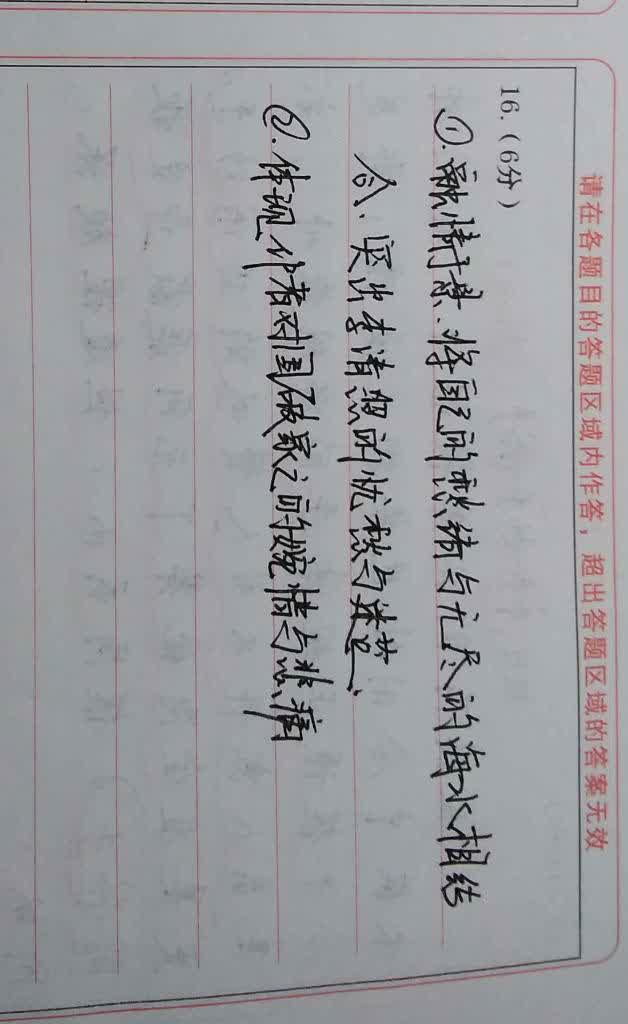 请在各题目的答题区域内作答，超出答题区域的答案无效
16.（6分）
①.融情于景、将自己的愁绪与无尽的海水相结
合、突出李清照的忧愁与迷茫、
②.体现作者对国破家之的婉情与悲痛